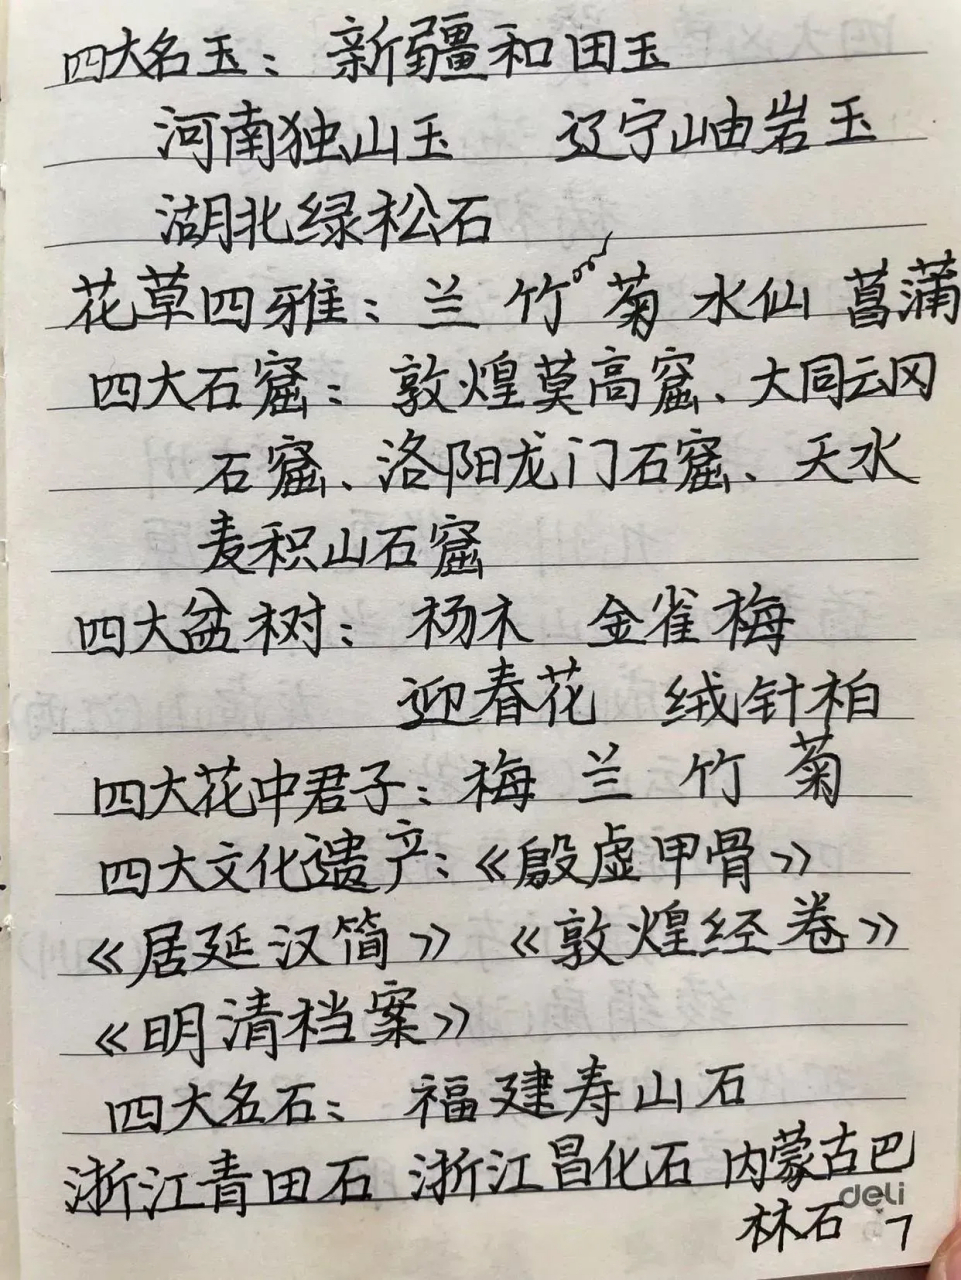 四大名玉：新疆和田玉
河南独山玉 辽宁岫岩玉
湖北绿松石
花草四雅：兰 竹 菊 水仙 菖蒲
四大石窟：敦煌莫高窟、大同云冈
石窟、洛阳龙门石窟、天水
麦积山石窟
四大盆树：杨木 金雀梅
迎春花 绒针柏
四大花中君子：梅 兰 竹 菊
四大文化遗产：《殷虚甲骨》
《居延汉简》《敦煌经卷》
《明清档案》
四大名石：福建寿山石
浙江青田石 浙江昌化石 内蒙古巴
deli
林石 7